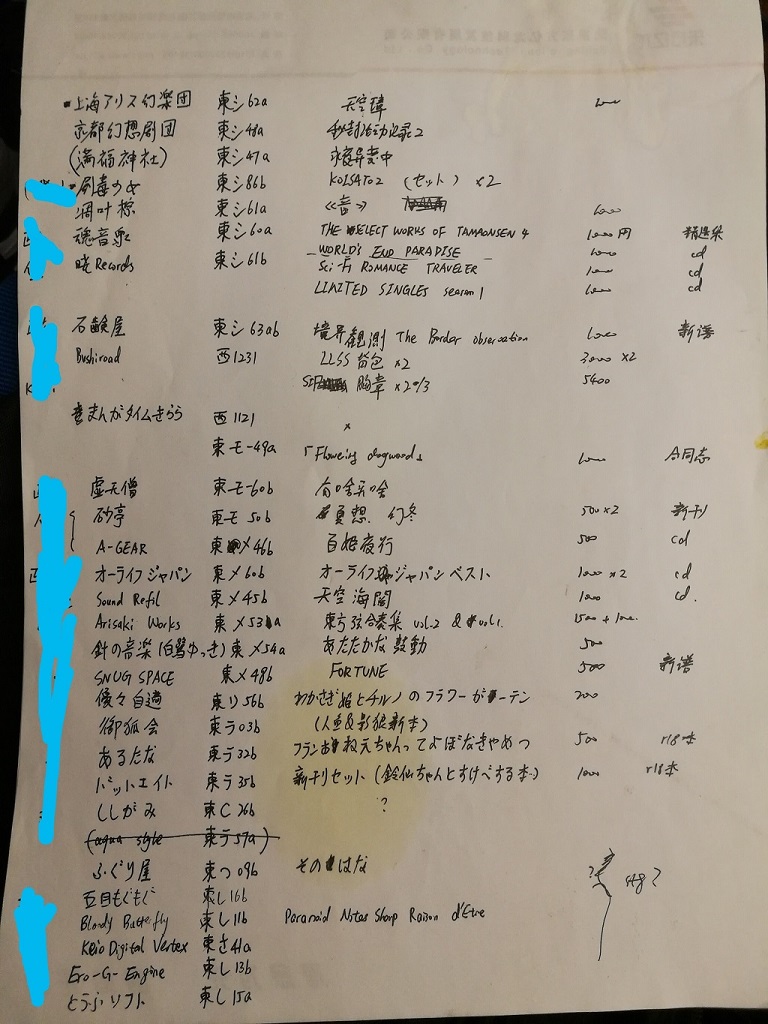 上海アリス幻楽団 東シ62a 天空璋 1000
京都幻想劇団 東シ48a 秘封活動記録2
(満福神社) 東シ47a 永夜異変中
東シ86b KOISATO2 (セット) ×2
凋叶棕 東シ61a 《音》 1000
魂音泉 東シ60a THE SELECT WORKS OF TAMAONSEN 4 1000円 精選集
暁Records 東シ61b WORLD'S END PARADISE 1000 cd
Sci-Fi ROMANCE TRAVELER 1000 cd
LIMITED SINGLES season 1 1000 cd
石鹸屋 東シ63ab 境界観測 The Border observation 1000 新譜
Bushiroad 西1231 LLSS 背包 ×2 3000 ×2
胸章 ×2 5400
まんがタイムきらら 西1121 ×
東モ-49a 「Flowering dogwood」 1000 合同志
虚无僧 東モ-60b 有啥买啥
砂亭 東モ50b 夏想. 幻冬 500×2 新刊
A-GEAR 東メ46b 百姫夜行 500 cd
オーライフジャパン 東メ60b オーライフジャパンベスト 1000×2 cd
Sound Refil 東メ45b 天空海闊 1000 cd.
Arisaki Works 東メ53a 東方弦奏集 vol.2 & vol1. 1500 + 1000.
針の音楽(白鷺ゆっき) 東メ54a あたたかな鼓動 500
SNUG SPACE 東メ48b FORTUNE 500 新譜
優々自適 東リ56b わかさぎ姫とチルノのフラワーガーデン 200
御狐会 東ラ03b (人魚&影狼新本)
あるたな 東ラ32b フランお 500 r18本
ドットエイト 東ラ35b 新刊セット(鈴仙ちゃんとすけべする本) 1000 r18本
ししがみ 東C 26b ?
(aqua style 東ラ57a)
ふぐり屋 東つ09b そのはな
五目もぐもぐ 東し16b
Bloody Butterfly 東し11b Paranoid Notes Sharp Raison d'Etre
Keio Digital Vertex 東さ41a
Ero-G-Engine 東し13b
とうふソフト 東し15a